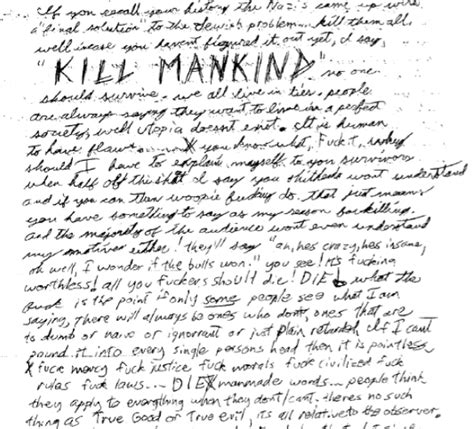 If you recall your history the Nazis came up with
a "final solution" to the Jewish problem... kill them all.
well incase you havent figured it out yet, I say,
"KILL MANKIND" no one
should survive. we all live in lies. people
are always saying they want to live in a perfect
society, well utopia doesnt exist. It is human
to have flaws... X you know what, Fuck it, why
should I have to explain myself to you survivors
when half of this shit I say you shitheads wont understand
and if you can then woopie fucking do. that just means
you have something to say as my reason for killing.
and the majority of the audience wont even understand
my motives either! they'll say "ah, hes crazy, hes insane,
oh well, I wonder if the bulls won." you see! its fucking
worthless! all you fuckers should die! DIE! what the
fuck is the point if only some people see what I am
saying, there will always be ones who dont, ones that are
to dumb or naive or ignorrant or just plain retarded. If I cant
pound it into every single persons head then it is pointless.
X fuck mercy fuck justice fuck morals fuck civilized fuck
rules fuck laws... DIE X manmade words... people think
they apply to everything when they dont/cant. theres no such
thing as True Good or True evil, its all relative to the observer.